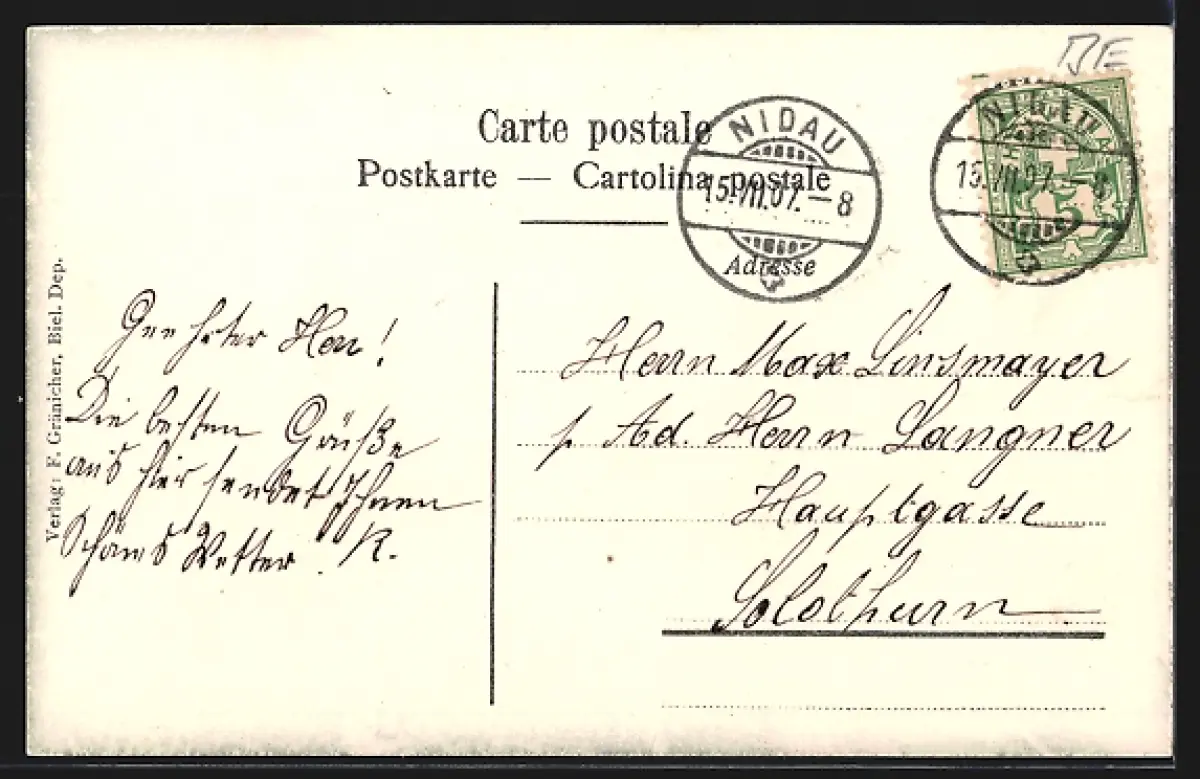 BE
Carte postale
Postkarte — Cartolina postale
NIDAU
15.VII.07.–8
Adresse
NIDAU
15.VII.07.–8
HELVETIA
5
Verlag: F. Gränicher, Biel. Dep.
Geehrter Herr!
Die besten Grüße
aus hier sendet Ihnen
Schönes Wetter. R.
Herrn Max Linsmayer
p. Ad. Herrn Langner
Hauptgasse
Solothurn